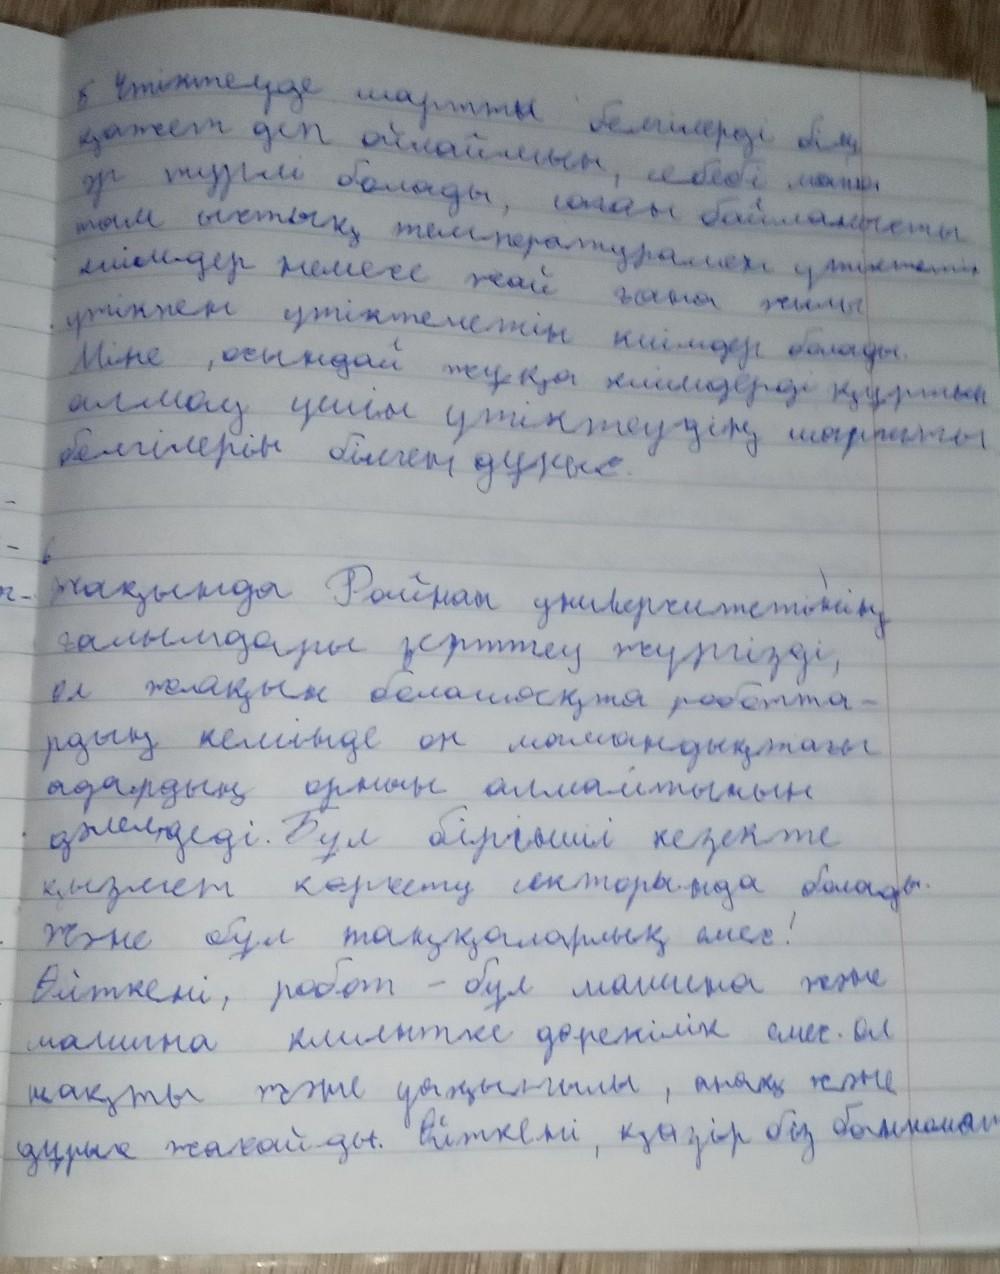 5 Үтіктеуде шартты белгілерді білу
қажет деп ойлаймын, себебі мата
әр түрлі болады, соған байланысты
тым ыстық температурамен үтіктетін
киімдер немесе жай ғана жылы
үтікпен үтіктелетін киімдер болады.
Міне, осындай жұқа киімдерді құртып
алмау үшін үтіктеудің шартты
белгілерін білген дұрыс.
6
Жақында Райнан университетінің
ғалымдары зерттеу жүргізді,
ол жақын болашақта робótта-
рдың кемінде он мамандықтағы
адардың орнын алмайтынын
дәлелдеді. Бұл бірінші кезекте
қызмет көрсету секторында болады.
Және бұл таңқаларлық емес!
Өйткені, робот - бұл машина және
машина клиентке дөрекілік емес. ол
нақты және ұқыпты, анық және
дұрыс жасайды. Өйткені, қазір біз банкомат